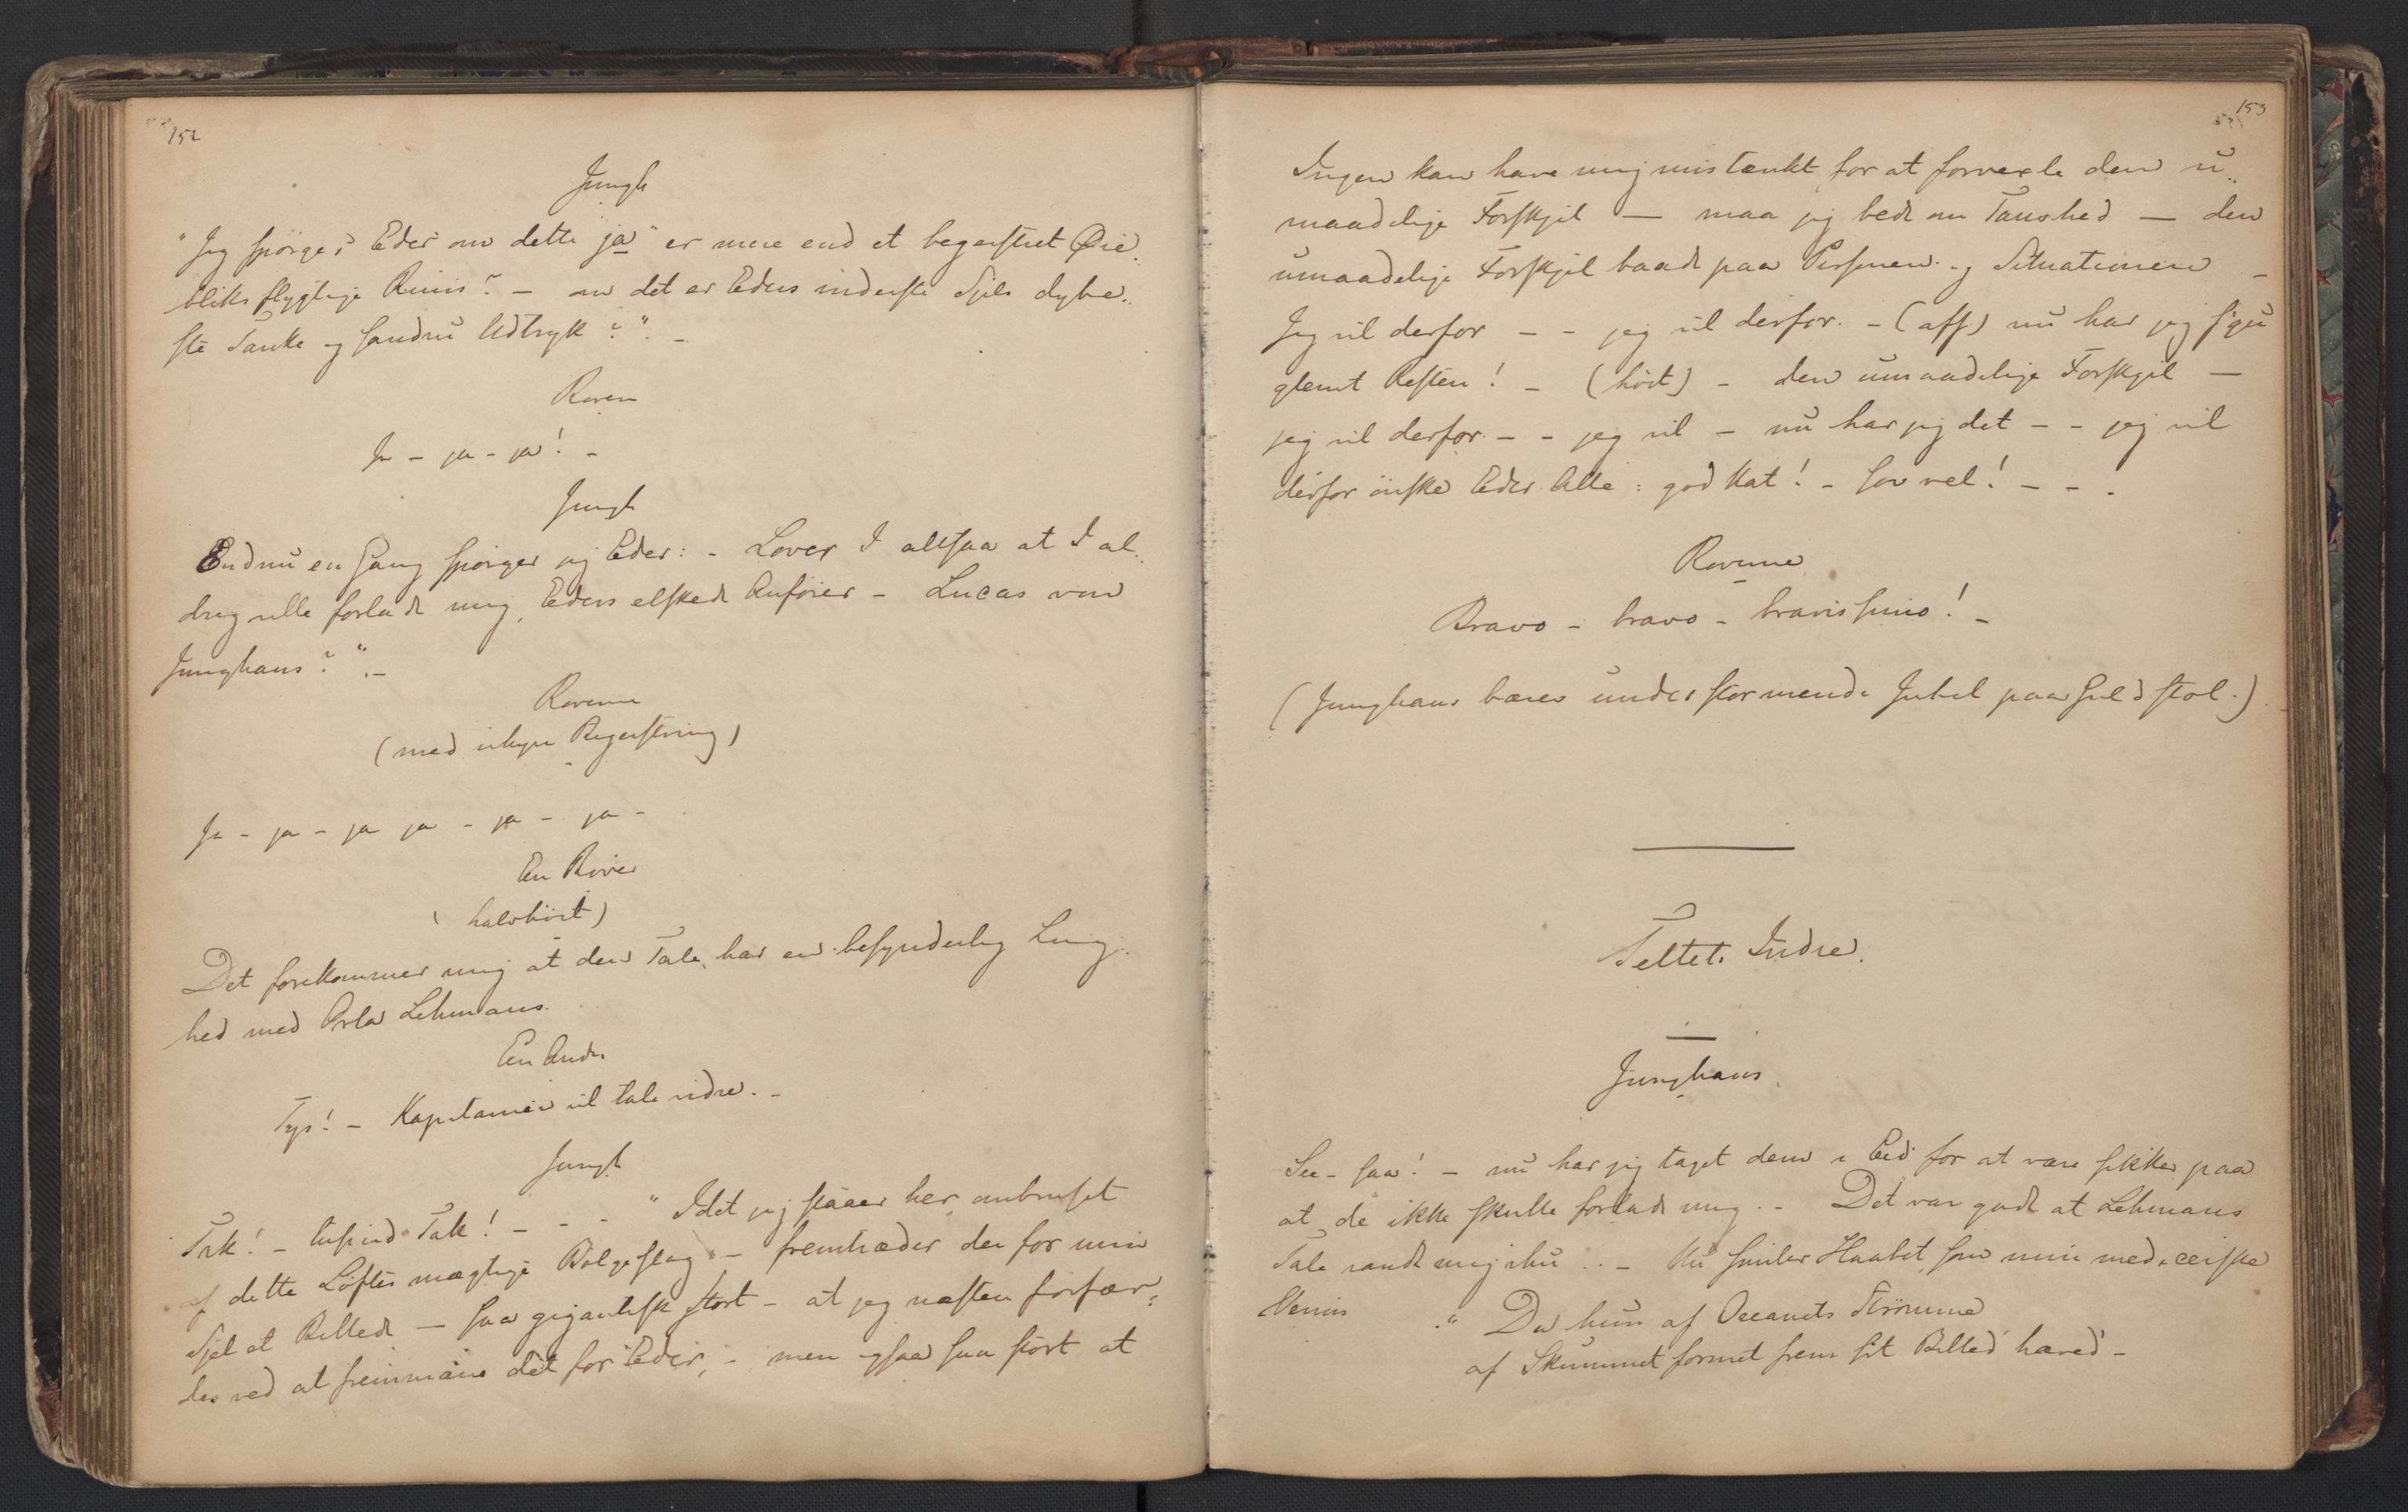 152
Jungh
"Jeg spörger Eder om dette ja" er mere end et begeistret Øie-
bliks flygtige Ruus? - om det er Eders inderste Sjels dybe-
ste Tanke og sandru Udtryk?". -
Røverne
Ja - ja - ja! -
Jungh
Endnu en Gang spörger jeg Eder: - Lover I altsaa at I al-
drig ville forlade mig, Eders elskede Anförer - Lucas von
Junghans?". -
Røverne
(med uhyre Begeistring)
Ja - ja - ja ja - ja - ja -
En Röver
(halvhöit)
Det forekommer mig at den Tale har en besynderlig Liig-
hed med Orla Lehmans.
En Anden
Tys! - Kapitainen vil tale videre. -
Jungh
Tak! - tusind Tak! - - - "Idet jeg staaer her, ombruset
af dette Löftes mægtige Bølgeslag - fremtræder der for min
Sjel et Billede - saa gigantisk stort - at jeg næsten forfær-
des ved at fremmane det for Eder, - men ogsaa saa stort at
153
Ingen kan have mig mistænkt for at forvexle den u-
maadelige Forskjel - maa jeg bede om Taushed - den
umaadelige Forskjel baade paa Personen og Situationen -
Jeg vil derfor - - jeg vil derfor - (aff) nu har jeg s'gu
glemt Resten! - (höit) - den umaadelige Forskjel -
jeg vil derfor - - jeg vil - nu har jeg det - - jeg vil
derfor önske Eder Alle: god Nat! - sov vel! - - -
Røverne
Bravo - bravo - bravissimo! -
(Junghans bæres under stormende Jubel paa Guldstol.)
Teltets Indre.
Junghans.
See - saa! - nu har jeg taget dem i Eed for at være sikker paa
at de ikke skulle forlade mig. - Det var godt at Lehmans
Tale randt mig ihu .. - Nu smiler Haabet som min mediceiske
Venus
"Da hun af Oceanets Strömme
af Skummet formet frem sit Billed hæved -